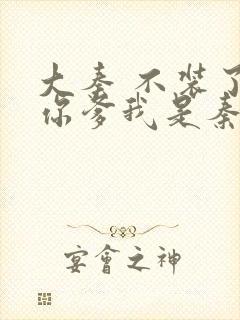 大秦 不装了
你爹我是秦
宴會之神